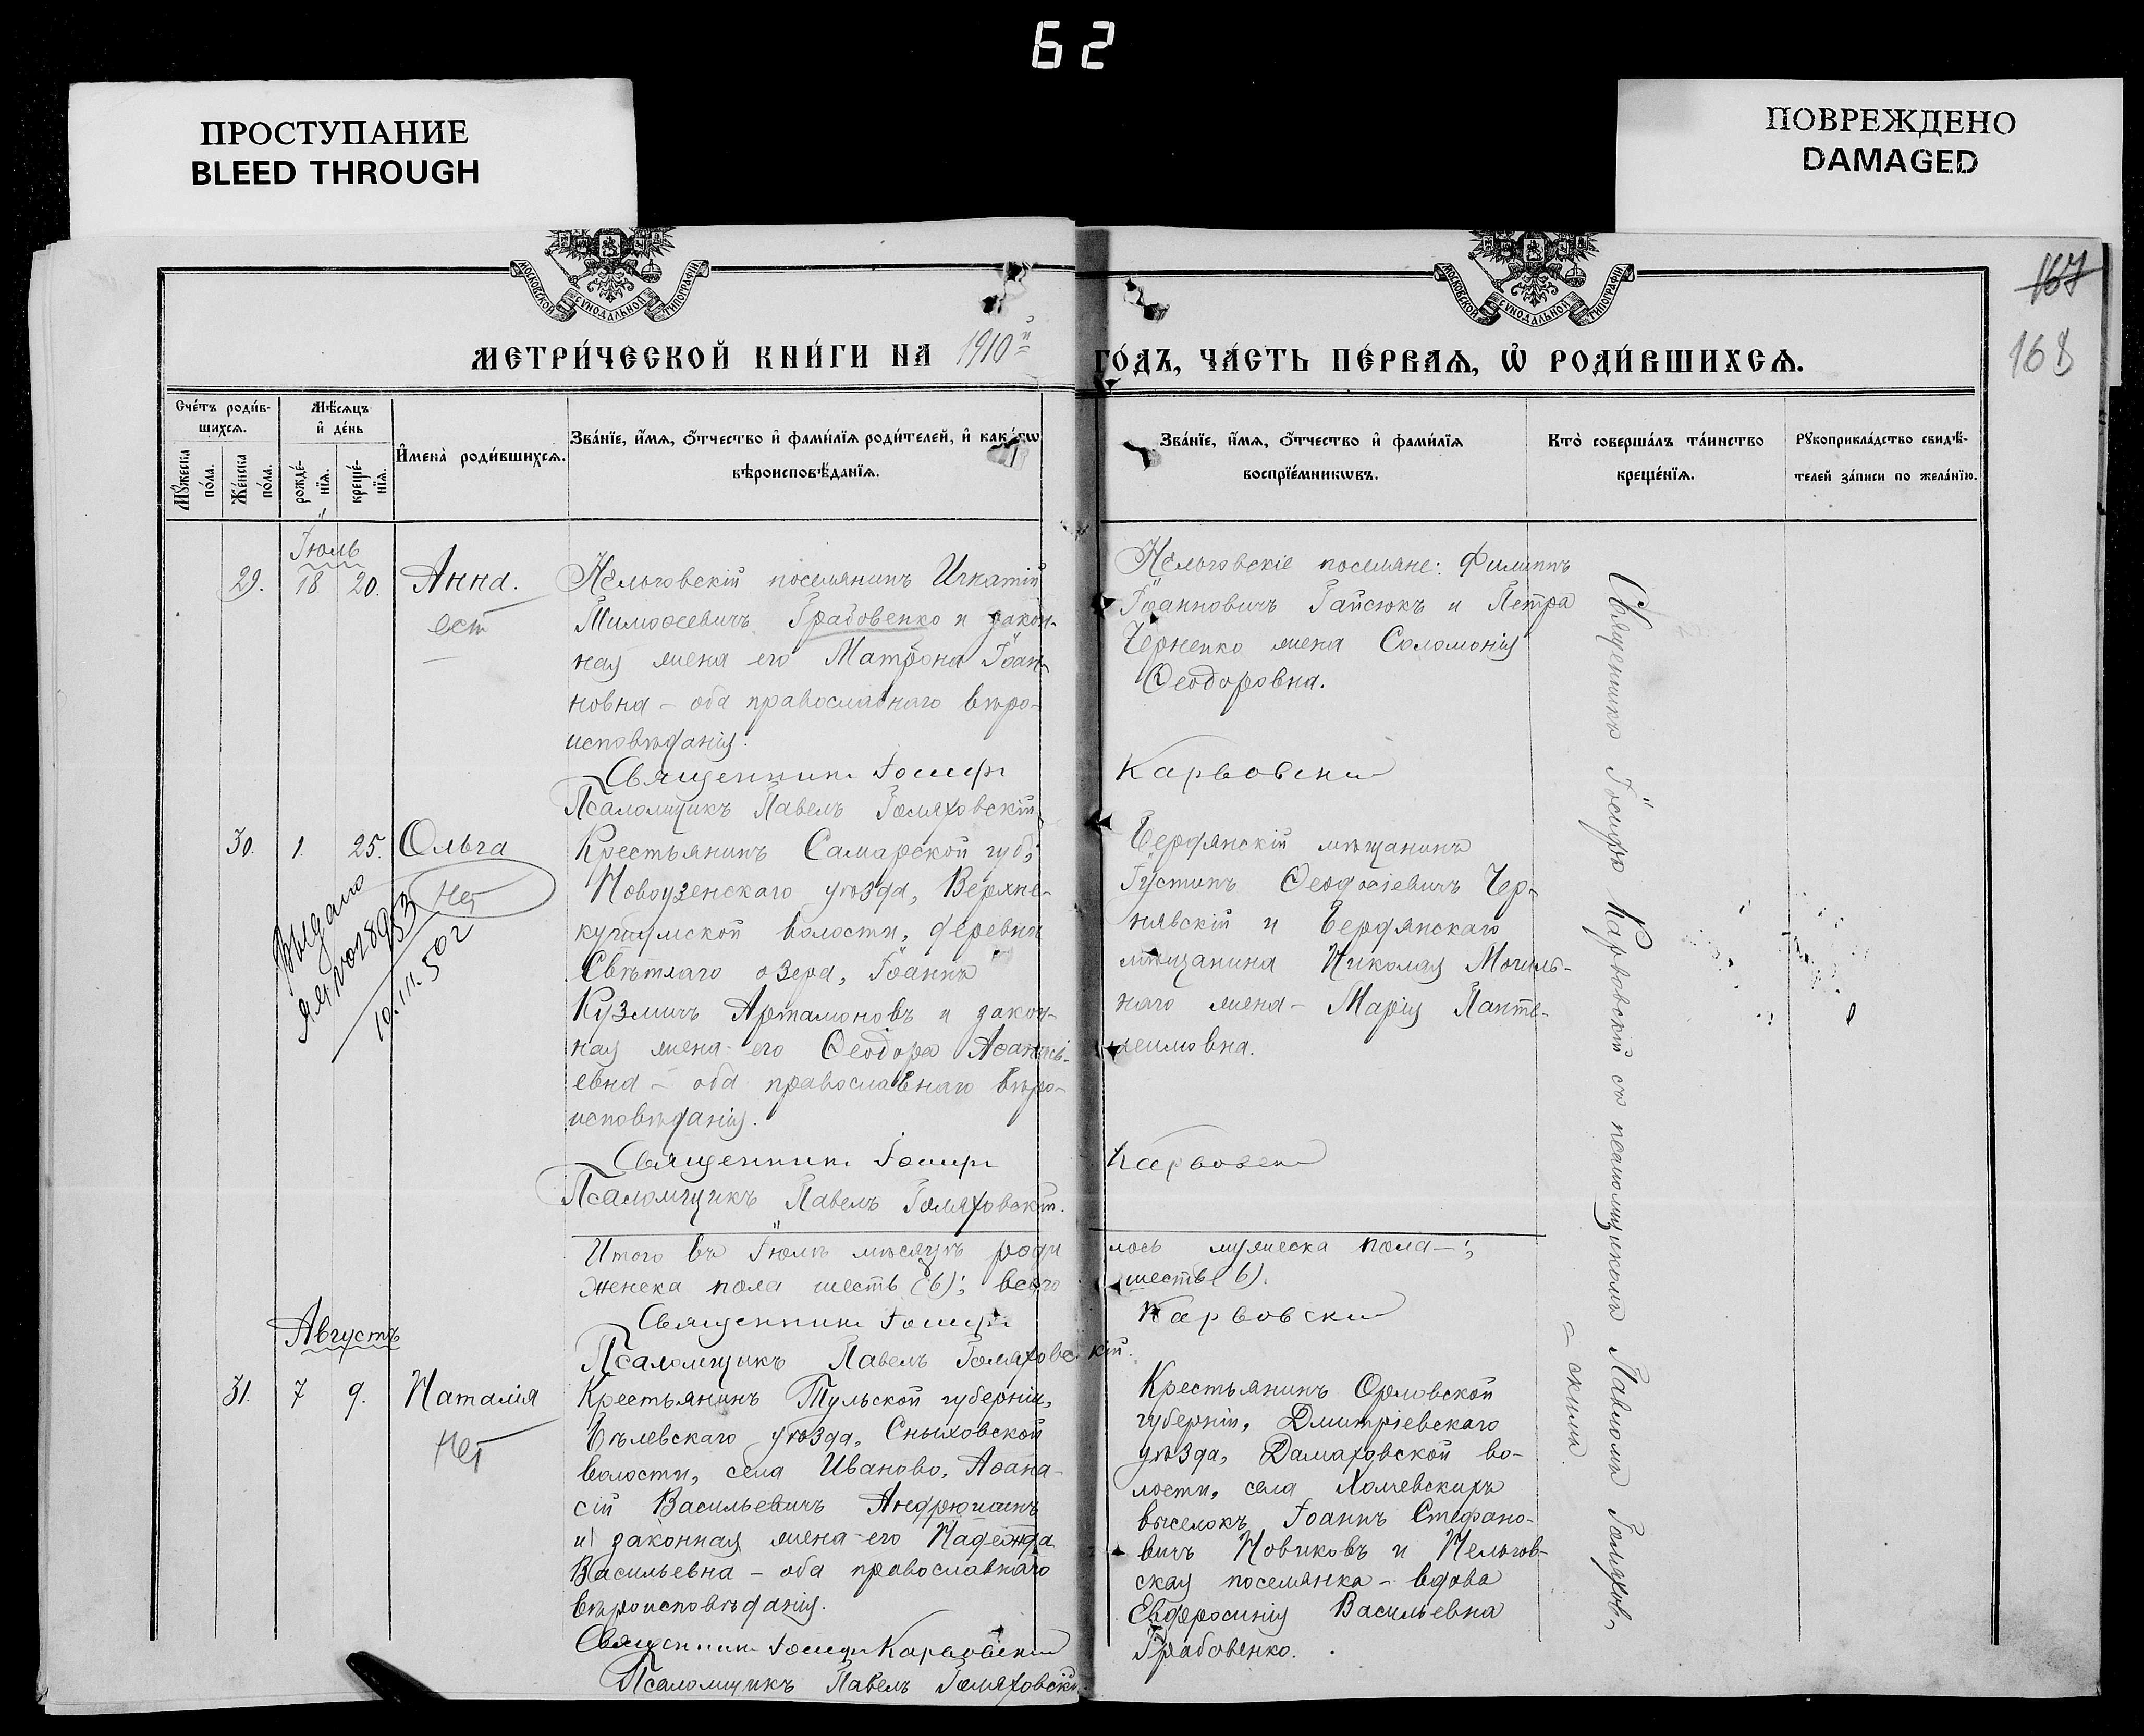 62
ПРОСТУПАНИЕ
BLEED THROUGH
ПОВРЕЖДЕНО
DAMAGED
МОСКОВСКОЙ СѴНОДАЛЬНОЙ ТИПОГРАФІИ
МОСКОВСКОЙ СѴНОДАЛЬНОЙ ТИПОГРАФІИ
167
168
МЕТРИ́ЧЕСКОЙ КНИ́ГИ НА 1910й
ГО́ДЪ, ЧА́СТЬ ПЕ́РВАѦ, Ѡ҆ РОДИ́ВШИХСѦ.
Сче́тъ роди́в-
шихсѧ.
Мꙋ́жеска
по́ла.
Же́нска
по́ла.
Мѣ́сѧцъ
и҆ де́нь
рожде́-
нїѧ.
креще́-
нїѧ.
И҆мена̀ роди́вшихсѧ.
Зва́нїе, и҆́мѧ, ѻ҆́тчество и҆ фами́лїѧ роди́телей, и҆ како́гѡ
вѣроисповѣ́данїѧ.
Зва́нїе, и҆́мѧ, ѻ҆́тчество и҆ фами́лїѧ
воспрїе́мникѡвъ.
Кто̀ соверша́лъ та́инство
креще́нїѧ.
Рꙋкоприкла́дство свидѣ́-
телей за́писи по жела́нїю.
Іюль
29. 18 20. Анна.
ест
Нельговскій поселянинъ Игнатій
Тимоѳеевичъ Грабовенко и закон-
ная жена его Матрона Іоан-
новна – оба православнаго вѣро-
исповѣданія.
Священникъ Іосифъ
Псаломщикъ Павелъ Голяховскій.
Нельговскіе поселяне: Филиппъ
Іоанновичъ Гайсюкъ и Петра
Черненко жена Соломонія
Ѳеодоровна.
Карвовскій
30. 1. 25. Ольга
Нет
Выдано
10.III.50г
Крестьянинъ Самарской губ.,
Новоузенскаго уѣзда, Верхне-
кушумской волости, деревни
Свѣтлаго озера, Іоаннъ
Кузмичъ Артамоновъ и закон-
ная жена его Ѳеодора Аѳанась-
евна – оба православнаго вѣро-
исповѣданія.
Священникъ Іосифъ
Псаломщикъ Павелъ Голяховскій.
Бердянскій мѣщанинъ
Іустинъ Ѳеодосіевичъ Чер-
нявскій и Бердянскаго
мѣщанина Николая Могиль-
наго жена – Марія Панте-
леимовна.
Карвовскій
Итого въ Іюлѣ мѣсяцѣ роди
лось мужеска пола –;
женска пола шесть (6); всего
шесть (6).
Священникъ Іосифъ
Карвовскій
Псаломщикъ Павелъ Голяховскій.
Августъ
31. 7 9. Наталія
Нет
Крестьянинъ Тульской губерніи,
Бѣлевскаго уѣзда, Сныховской
волости, села Иваново, Аѳана-
сій Васильевичъ Андрюшинъ
и законная жена его Надежда
Васильевна – оба православнаго
вѣроисповѣданія.
Священникъ Іосифъ Карвовскій
Псаломщикъ Павелъ Голяховскій
Крестьянинъ Орловской
губерніи, Дмитріевскаго
уѣзда, Дамаховской во-
лости, села Холчевскихъ
выселокъ, Іоаннъ Стефано-
вичъ Новиковъ и Нельгов-
ская поселянка – вдова
Евфросинія Васильевна
Грабовенко.
Священникъ Іосифъ Карвовскій съ псаломщикомъ Павломъ Голяхов-
скимъ.